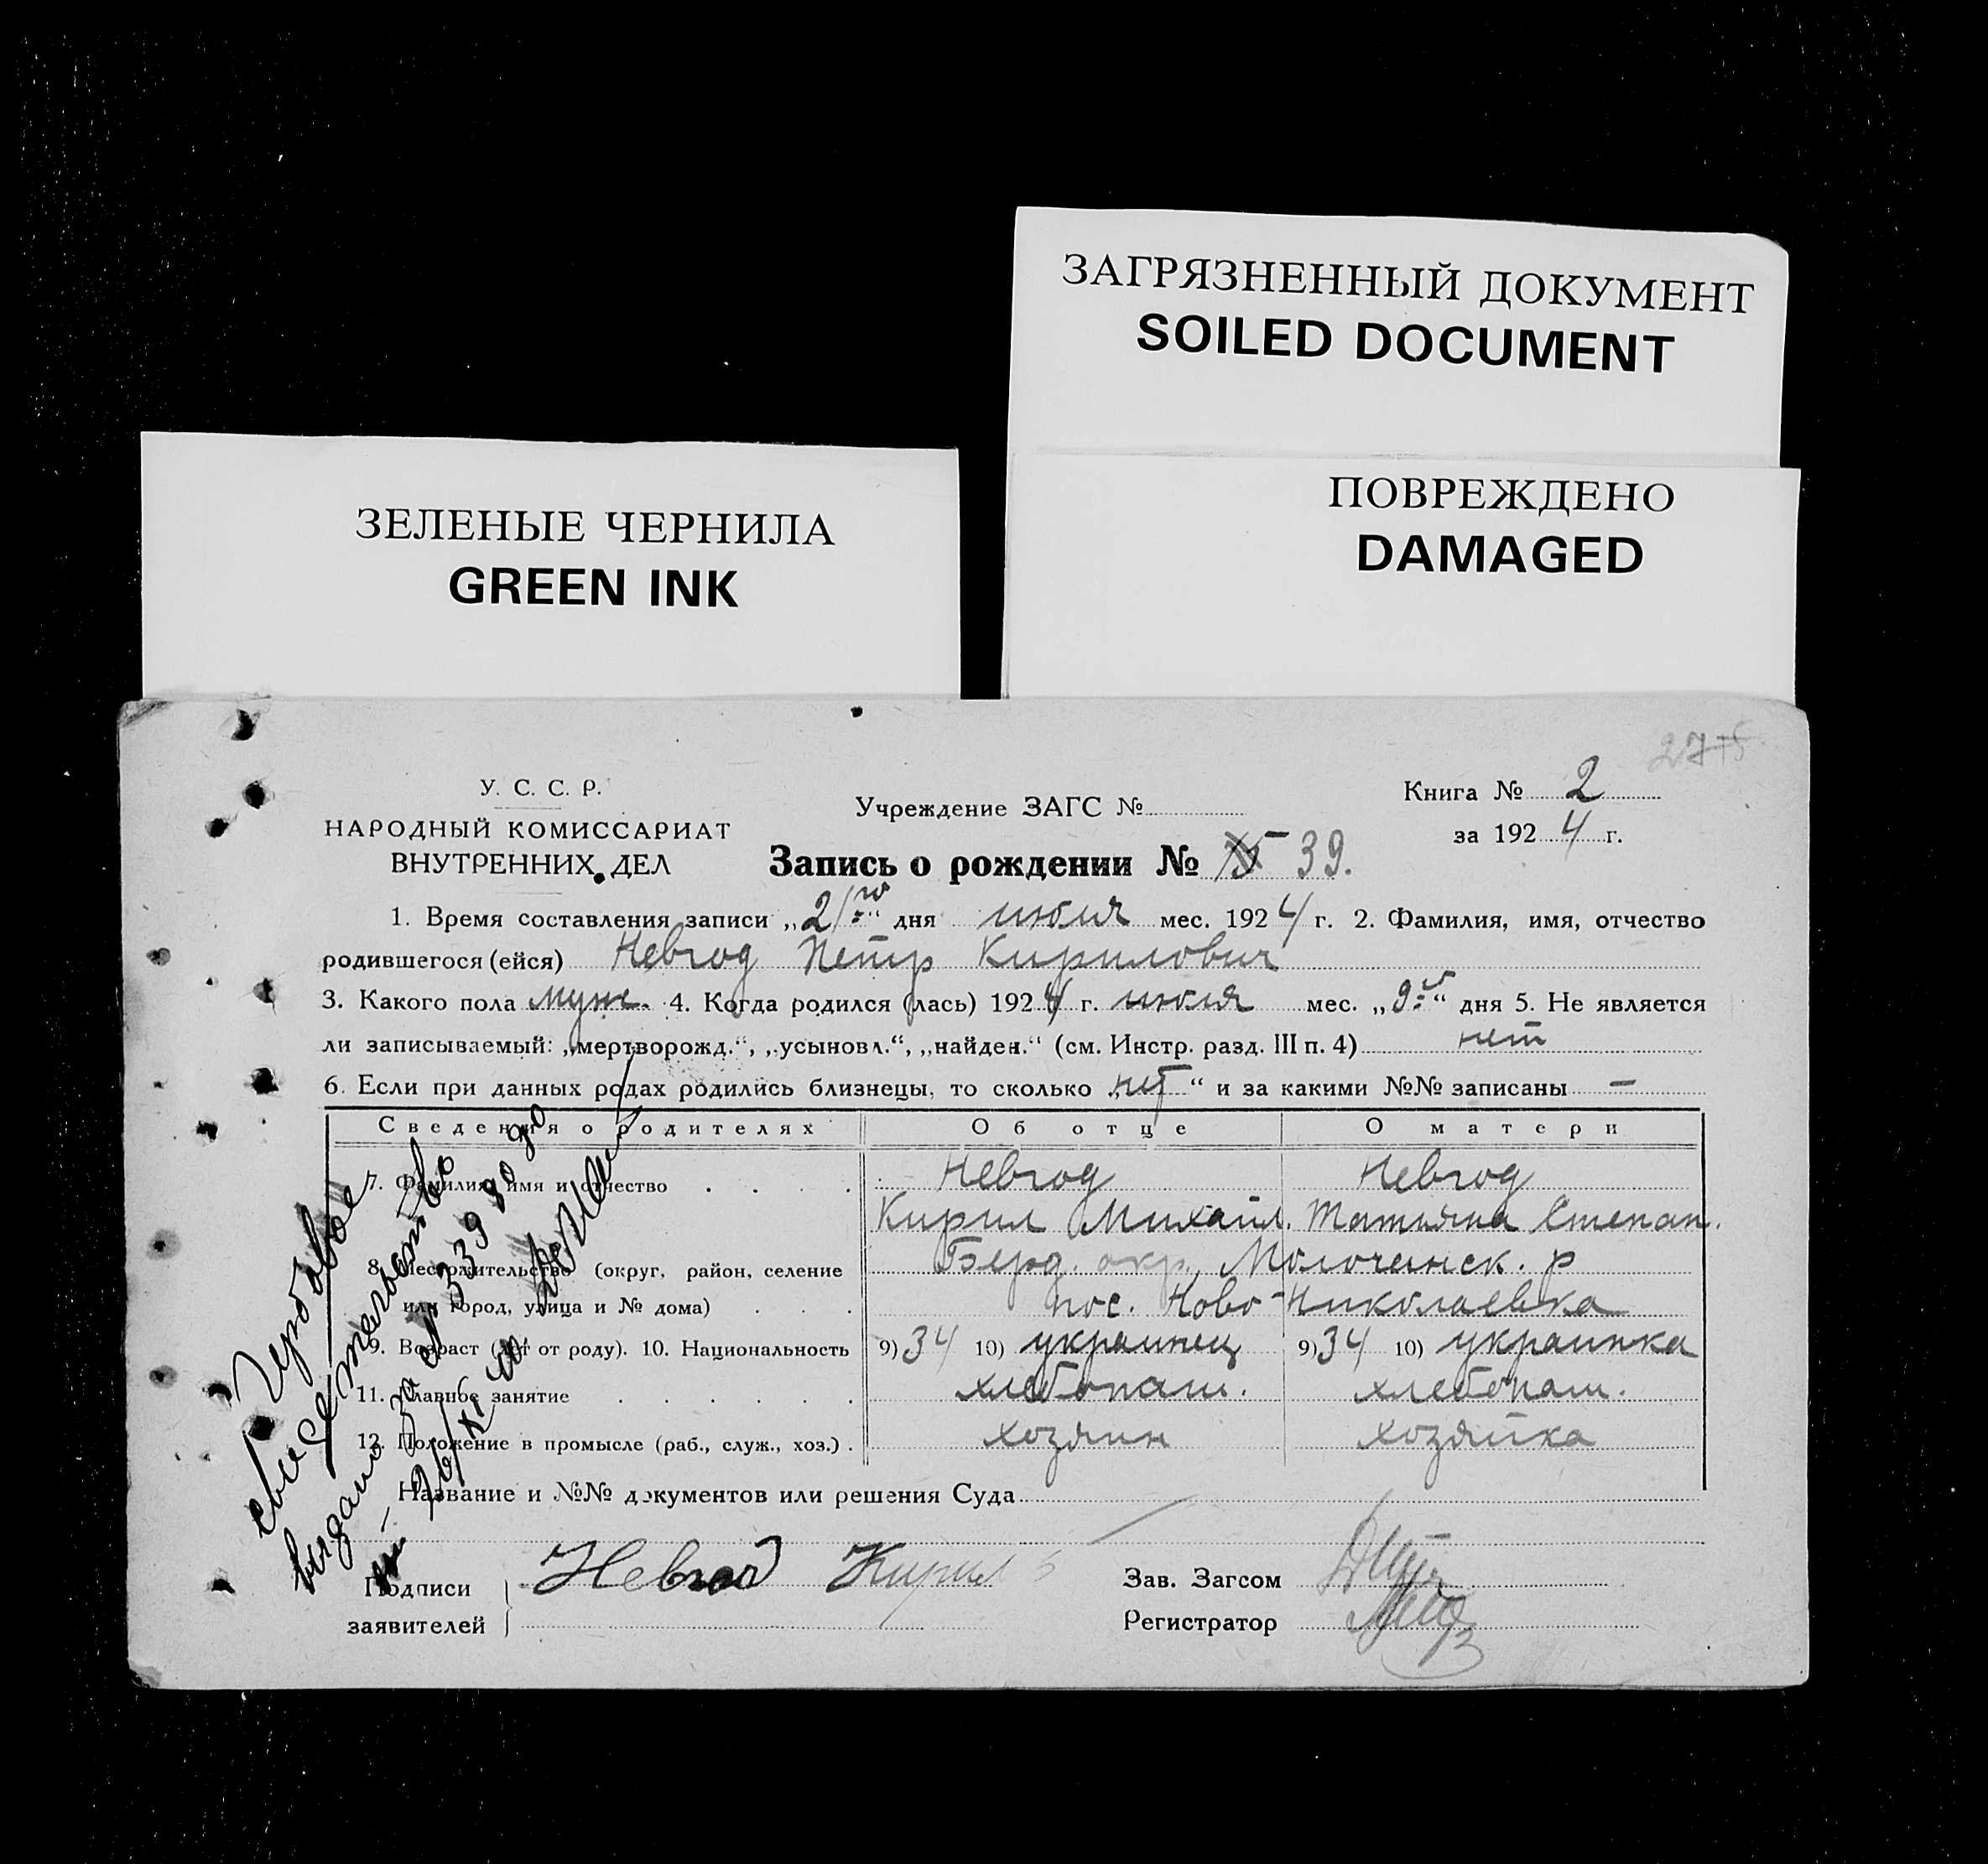 ЗАГРЯЗНЕННЫЙ ДОКУМЕНТ
SOILED DOCUMENT
ЗЕЛЕНЫЕ ЧЕРНИЛА
GREEN INK
ПОВРЕЖДЕНО
DAMAGED
У. С. С. Р.
НАРОДНЫЙ КОМИССАРИАТ
ВНУТРЕННИХ ДЕЛ
Учреждение ЗАГС №
Книга № 2
за 1924 г.
Запись о рождении № 39.
1. Время составления записи „21го“ дня июля мес. 1924 г. 2. Фамилия, имя, отчество
родившегося (ейся) Невгод Петр Кирилович
3. Какого пола муж. 4. Когда родился (лась) 1924 г. июля мес. „9“ дня 5. Не является
ли записываемый: „мертворожд.“, „усыновл.“, „найден.“ (см. Инстр. разд. III п. 4) нет
6. Если при данных родах родились близнецы, то сколько „нет“ и за какими №№ записаны —
Сведения о родителях Об отце О матери
7. Фамилия, имя и отчество Невгод Невгод
Кирил Михаил. Татьяна Степан.
8. Местожительство (округ, район, селение Берд. окр. Молочанск. р
или город, улица и № дома) пос. Ново-Николаевка
9. Возраст (лет от роду). 10. Национальность 9) 34 10) украинец 9) 34 10) украинка
11. Главное занятие хлебопаш. хлебопаш.
12. Положение в промысле (раб., служ., хоз.) хозяин хозяйка
Название и №№ документов или решения Суда
Подписи
заявителей
Невгод Кирил
Зав. Загсом
Регистратор
Гербовое
свидетельство
выдано за № 339